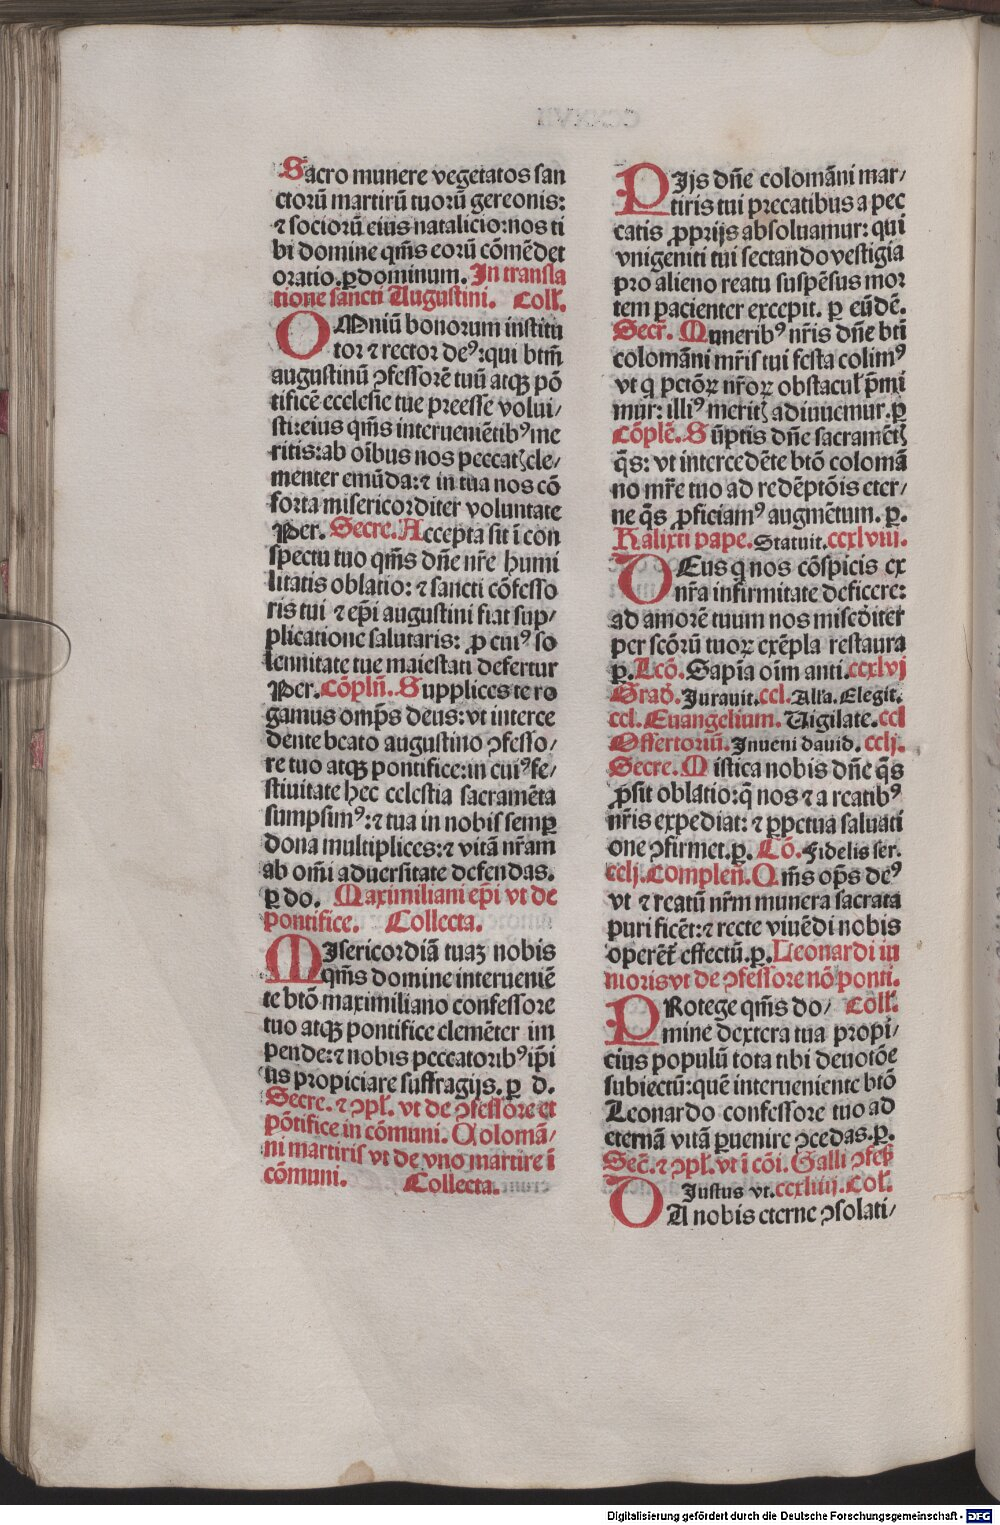 Sacro munere vegetatos san
ctorū martirū tuorū gereonis:
⁊ sociorū eius natalicio:nos ti
bi domine qm̄s eorū cōmēdet
oratio.ꝑdominum. In transla
tione sancti Augustini. Coll̄.
OMniū bonorum institu
tor ⁊ rector deꝰ:qui btm̄
augustinū ꝯfessorē tuū atqꝫ pō
tificē ecclesie tue preesse volui/
sti:eius qm̄s interueniētibꝰ me
ritis:ab oībus nos peccatꝭ cle/
menter emūda:⁊ in tua nos cō
forta misericorditer voluntate
Per. Secre. Accepta sit ī con
spectu tuo qm̄s dn̄e nr̄e humi
litatis oblatio: ⁊ sancti cōfesso
ris tui ⁊ ep̄i augustini fiat sup/
plicatione salutaris: ꝓ cuiꝰ so
lennitate tue maiestati defertur
Per. Cōpln̄. Supplices te ro
gamus omp̄s deus: vt interce
dente beato augustino ꝯfesso/
re tuo atqꝫ pontifice:in cuiꝰ fe/
stiuitate hec celestia sacramēta
sumpsimꝰ:⁊ tua in nobis semꝑ
dona multiplices:⁊ vitā nr̄am
ab om̄i aduersitate defendas.
ꝑ do. Maximiliani ep̄i vt de
pontifice. Collecta.
MIsericordiā tuaꝫ nobis
qm̄s domine interueniē
te btō maximiliano confessore
tuo atqꝫ pontifice clemēter im
pende:⁊ nobis peccatoribꝰ ip̄i
us propiciare suffragijs. ꝑ d.
Secre. ⁊ ꝯpl̄. vt de ꝯfessore et
pōtifice in cōmuni. Colomā/
ni martiris vt de vno martire ī
cōmuni. Collecta.
PIjs dn̄e colomāni mar/
tiris tui precatibus a pec
catis ꝓprijs absoluamur: qui
vnigeniti tui sectando vestigia
pro alieno reatu suspēsus mor
tem pacienter excepit. ꝑ eūdē.
Secr̄. Muneribꝰ nr̄is dn̄e btī
colomāni mr̄is tui festa colimꝰ
vt q pctōꝝ nr̄oꝝ obstacul̄ p̄mi
mur: illiꝰ meritꝭ adiuuemur.ꝑ
Cōplē. Sūptis dn̄e sacramētꝭ
q̄s: vt intercedēte btō colomā
no mr̄e tuo ad redēptōis eter/
ne q̄s ꝓficiamꝰ augmētum. ꝑ.
Kalixti pape. Statuit.ccxlviii.
DEus q nos cōspicis ex
nr̄a infirmitate deficere:
ad amorē tuum nos misc̄diter
per scōrū tuoꝝ exēpla restaura
ꝑ. Lcō. Sapīa oīm anti.ccxlvj
Grad̄. Jurauit.ccl. Alla. Elegit.
ccl. Euangelium. Vigilate. ccl
Offertoriū. Inueni dauid. cclj.
Secre. Mistica nobis dn̄e q̄s
ꝓsit oblatio:q̄ nos ⁊ a reatibꝰ
nr̄is expediat: ⁊ ꝑpetua saluati
one ꝯfirmet.ꝑ. Cō. Fidelis ser.
cclj. Complen̄. Qm̄s op̄s deꝰ
vt ⁊ reatū nr̄m munera sacrata
purificēt:⁊ recte viuēdi nobis
operēt̄ effectū.ꝑ. Leonardi in
moris vt de ꝯfessore nō ponti.
PRotege qm̄s do/ Cōll̄.
mine dextera tua propi/
cius populū tota tibi deuotōe
subiectū:quē interueniente btō
Leonardo confessore tuo ad
eternā vitā ꝑuenire ꝯcedas.ꝑ.
Sec̄. ⁊ ꝯpl̄. vt ī cōi. Galli ꝯfess̄
Justus vt.ccxliiij. Col̄.
DA nobis eterne ꝯsolati/
Digitalisierung gefördert durch die Deutsche Forschungsgemeinschaft - DFG